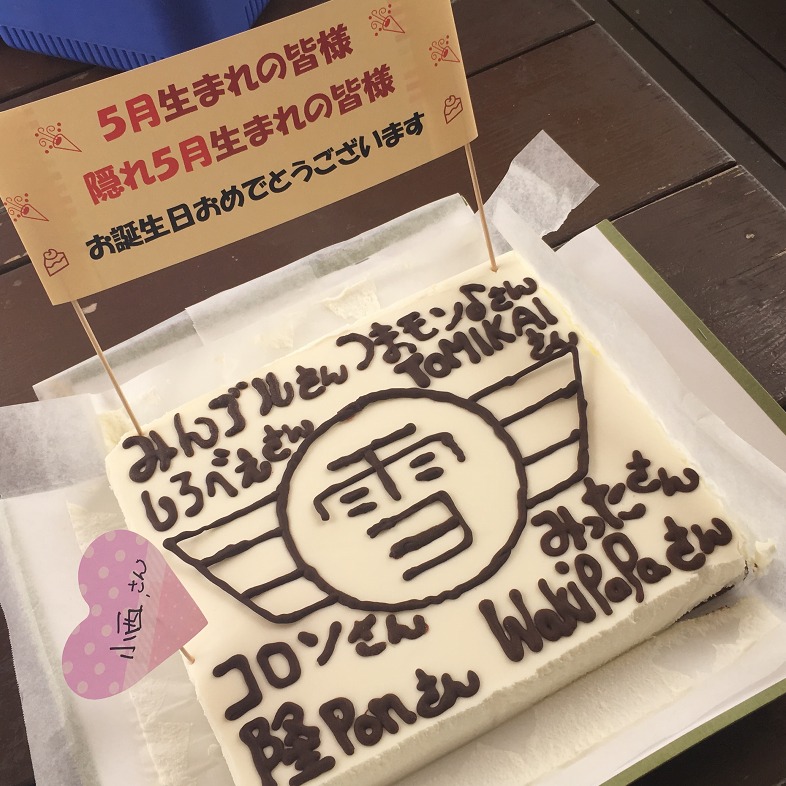 5月生まれの皆様
隠れ5月生まれの皆様
お誕生日おめでとうございます
つまモン♪さん
みんゴルさん
TOMIKAIさん
しろべえさん
雪
みったさん
WakiPaPaさん
小西さん
コロンさん
隆Ponさん